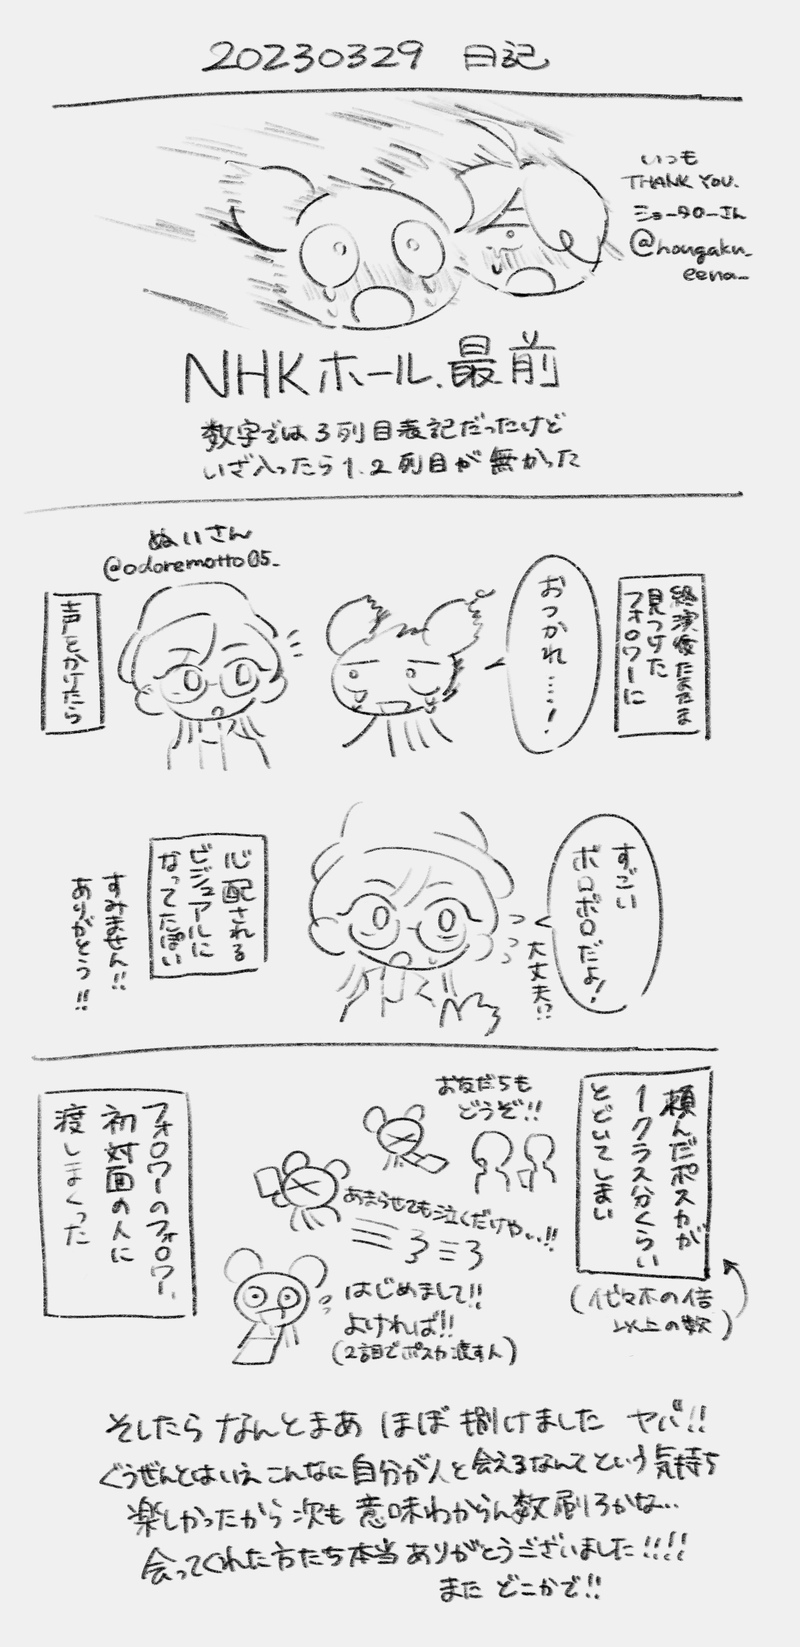 20230329 日記
いつも
THANK YOU.
ショータローさん
@hougaku_
eena_
NHKホール.最前
数字では3列目表記だったけど
いざ入ったら1.2列目が無かった
ぬいさん
@odoremotto05_
終演後たまたま
見つけた
フォロワーに
おつかれ…!
声をかけたら
すごい
ボロボロだよ!
大丈夫!?
心配される
ビジュアルに
なってたぽい
すみません!!
ありがとう!!
頼んだポスカが
1クラス分くらい
とどいてしまい
(代々木の倍
以上の数)
お友だちも
どうぞ!!
あまらせても泣くだけや…!!
はじめまして!!
よければ!!
(2言目でポスカ渡す人)
フォロワーのフォロワー、
初対面の人に
渡しまくった
そしたら なんとまあ ほぼ 捌けました ヤバ!!
ぐうぜんとはいえ こんなに 自分が人と会えるなんてという気持ち
楽しかったから 次も 意味わからん数刷ろかな…
会ってくれた方たち本当ありがとうございました!!!!
また どこかで!!